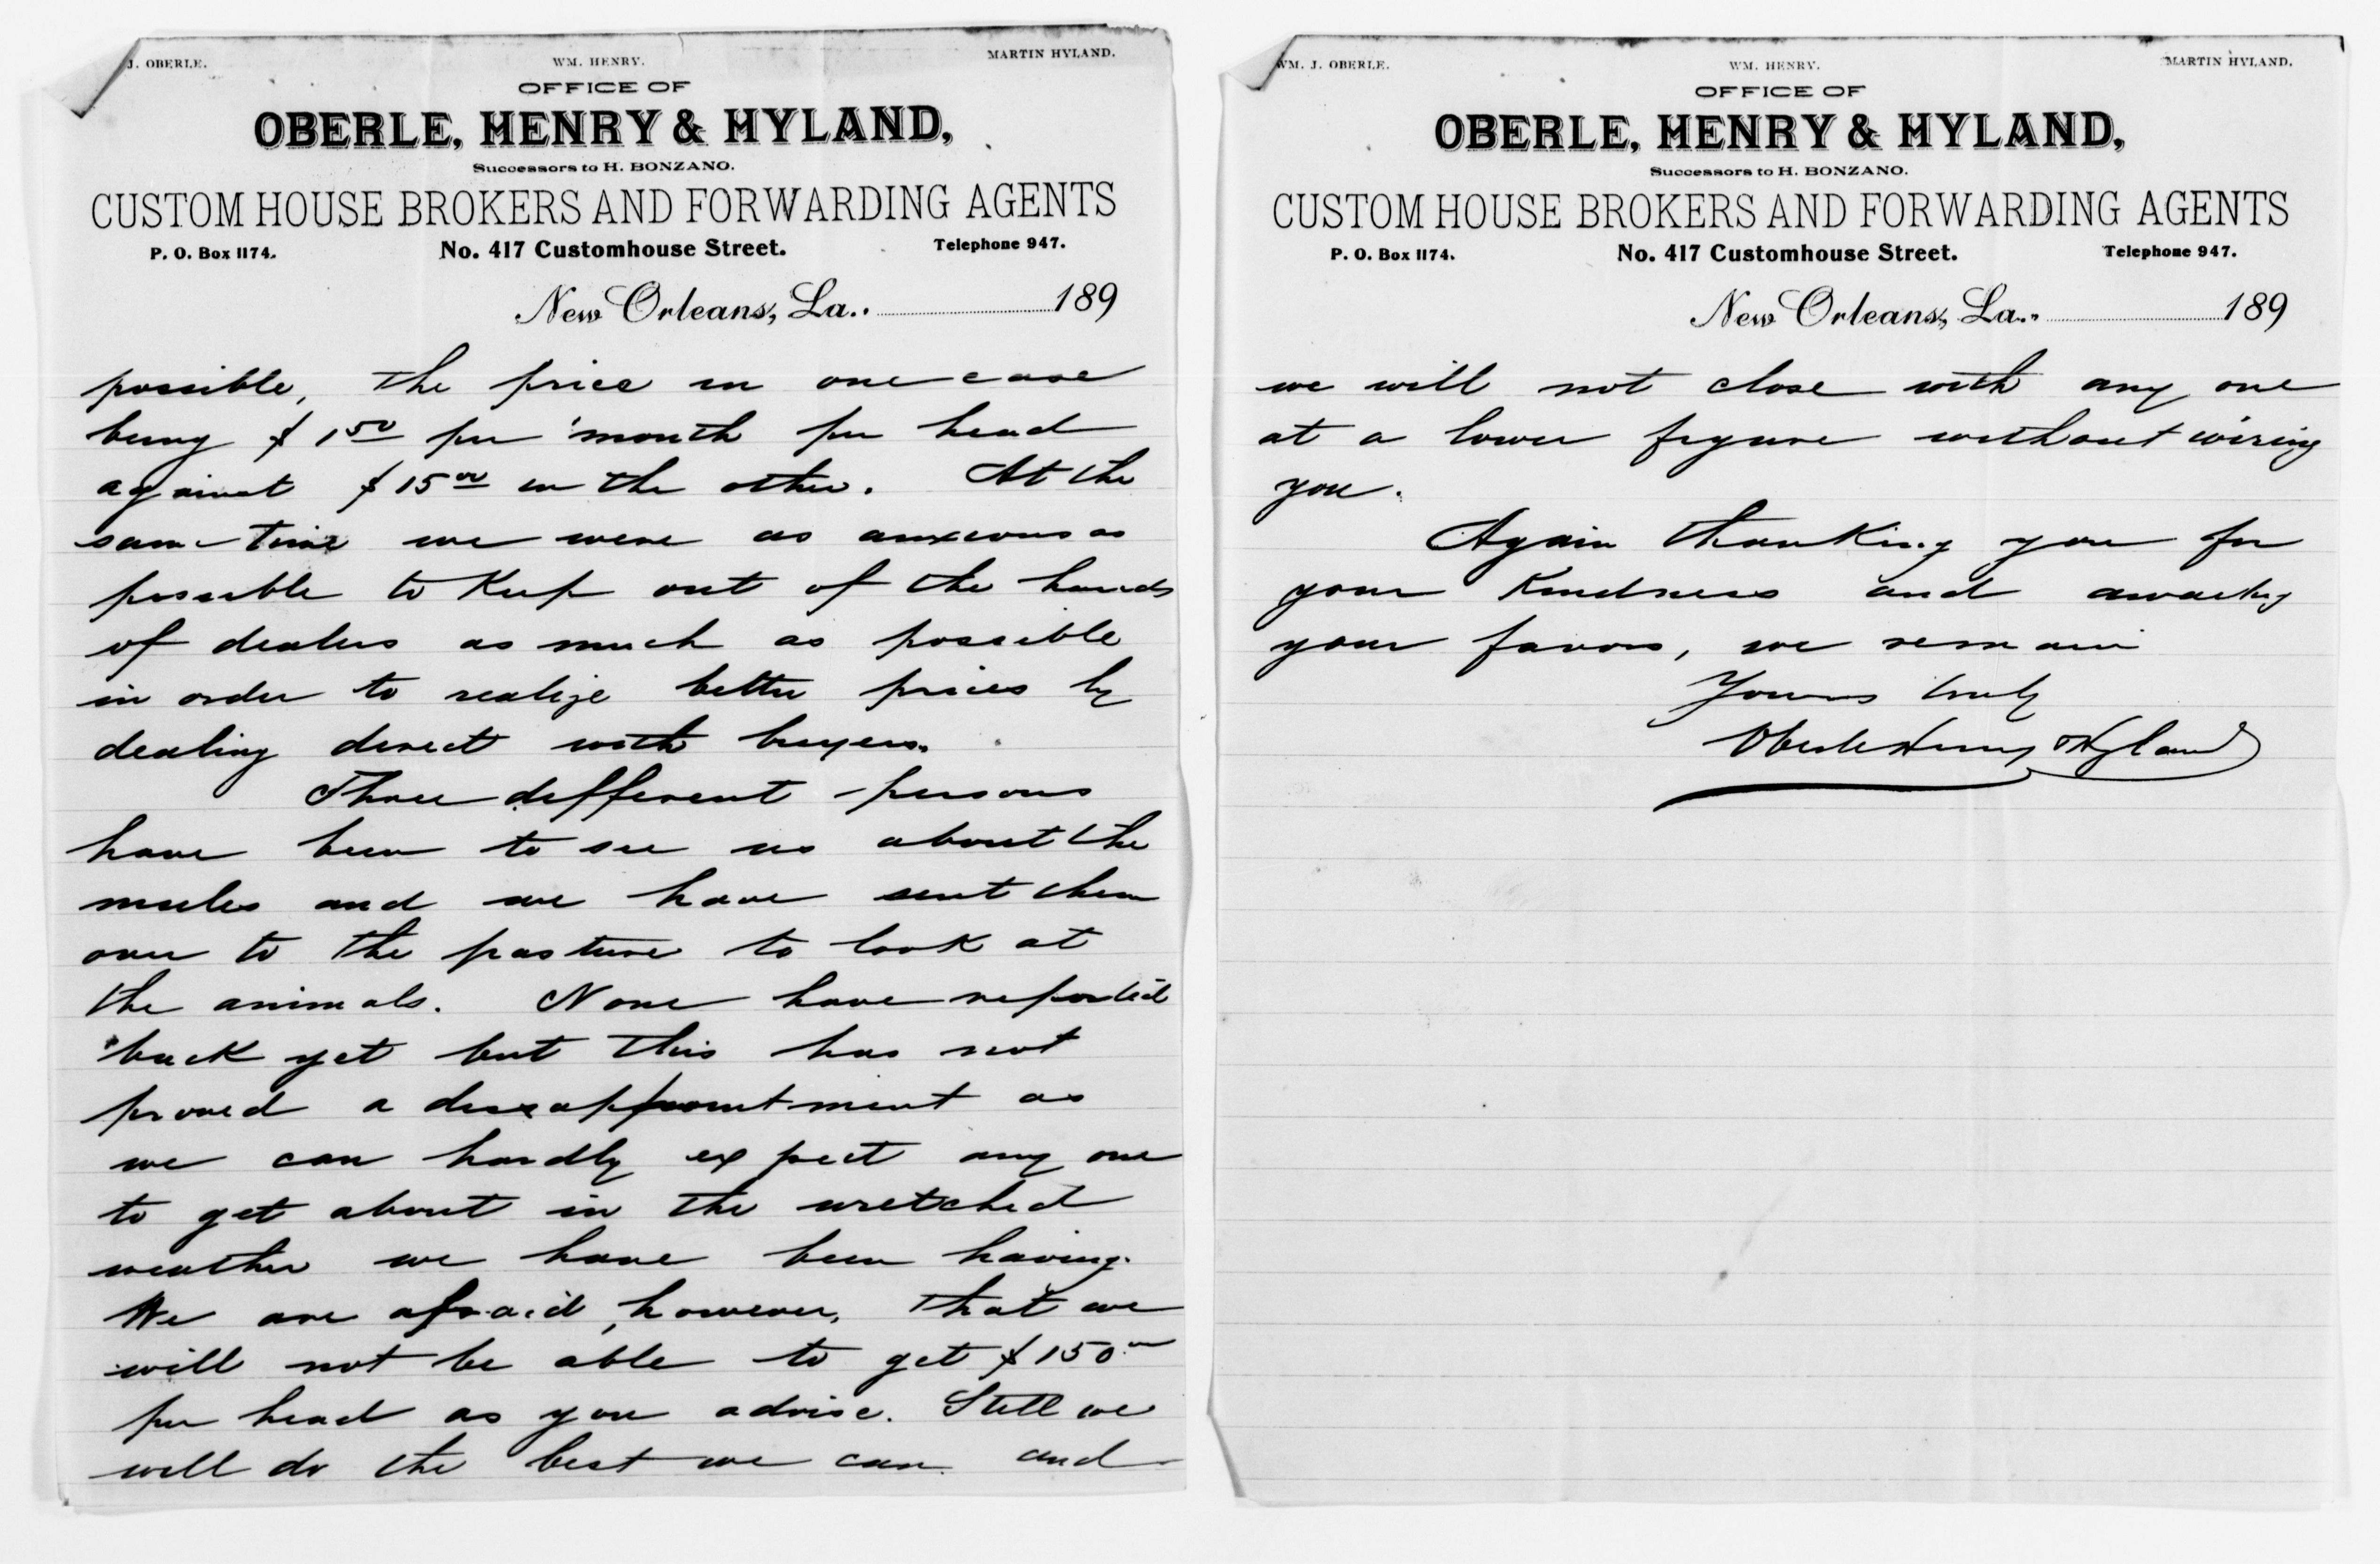 J. OBERLE. WM. HENRY. MARTIN HYLAND.
OFFICE OF
OBERLE, HENRY & HYLAND,
Successors to H. BONZANO.
CUSTOM HOUSE BROKERS AND FORWARDING AGENTS
P. O. Box 1174. No. 417 Customhouse Street. Telephone 947.
New Orleans, La., 189
possible, the price in one case
being $1 50 per month per head
against $15 00 in the other. At the
same time we were as anxious as
possible to Keep out of the hands
of dealers as much as possible
in order to realize better prices by
dealing direct with buyers.
Three different persons
have been to see us about the
mules and we have sent them
over to the pasture to look at
the animals. None have reported
back yet but this has not
proved a disappointment as
we can hardly expect any one
to get about in the wretched
weather we have been having.
We are afraid, however, that we
will not be able to get $150 00
per head as you advise. Still we
will do the best we can and
WM. J. OBERLE. WM. HENRY. MARTIN HYLAND.
OFFICE OF
OBERLE, HENRY & HYLAND,
Successors to H. BONZANO.
CUSTOM HOUSE BROKERS AND FORWARDING AGENTS
P. O. Box 1174. No. 417 Customhouse Street. Telephone 947.
New Orleans, La., 189
we will not close with any one
at a lower figure without wiring
you.
Again thanking you for
your Kindness and awaiting
your favors, we remain
Yours truly
Oberle Henry & Hyland